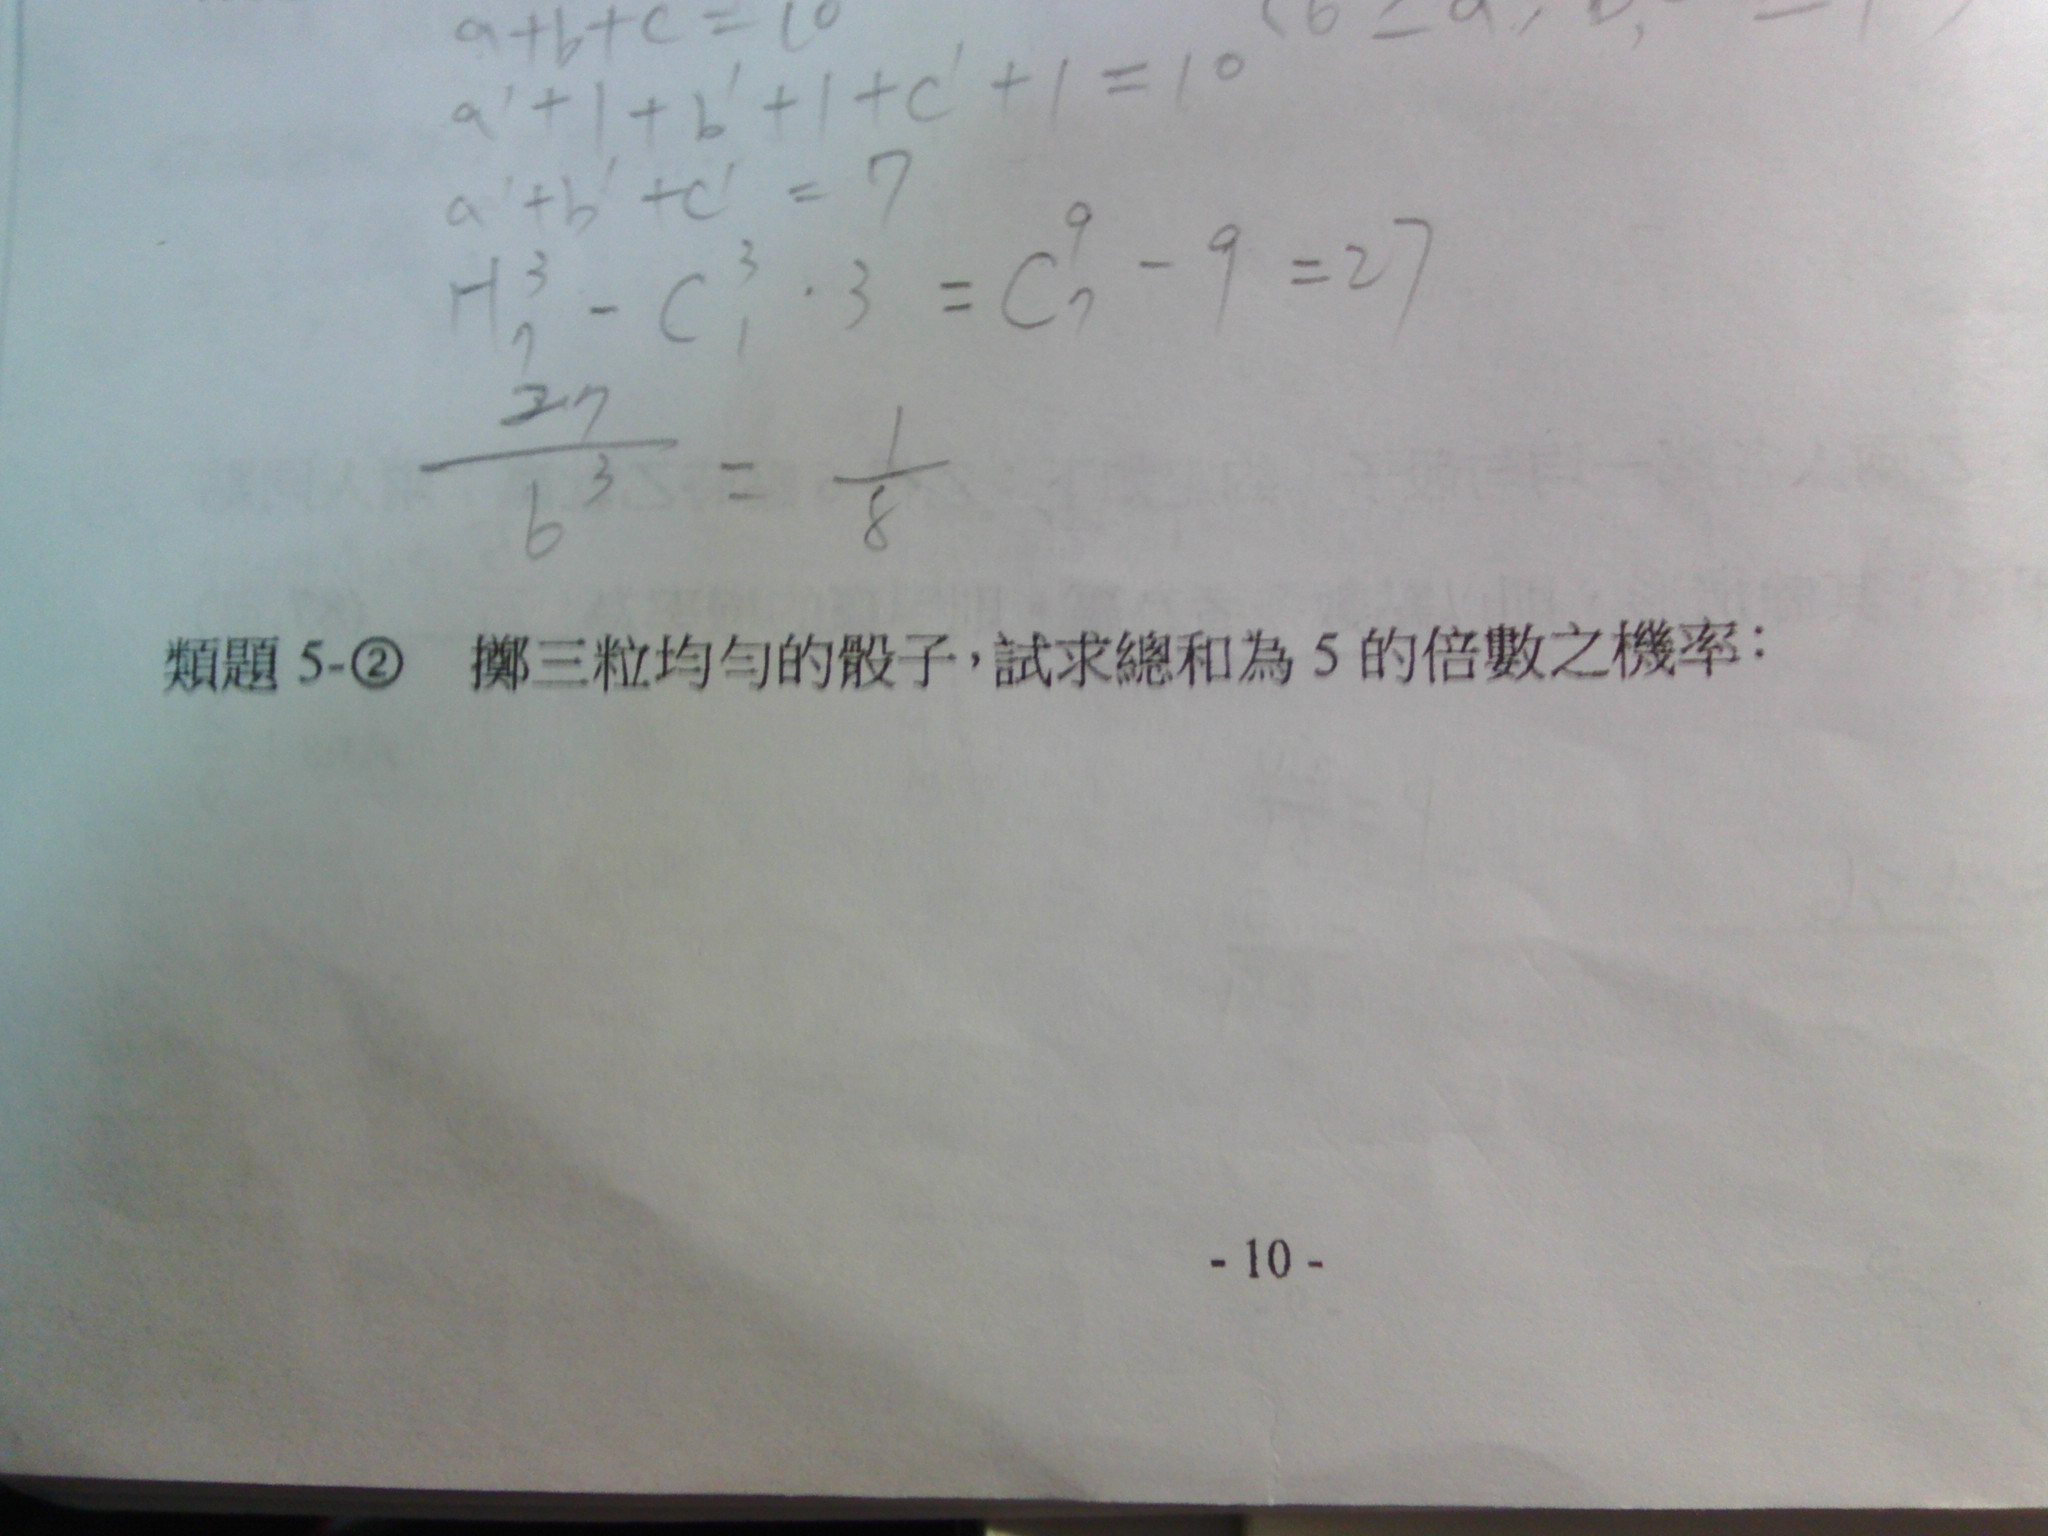 a+b+c=10
a'+1+b'+1+c'+1=10
a'+b'+c'=7
H³₇-C³₁·3=C⁹₇-9=27
27/6³=1/8
類題 5-② 擲三粒均勻的骰子,試求總和為 5 的倍數之機率:
- 10 -